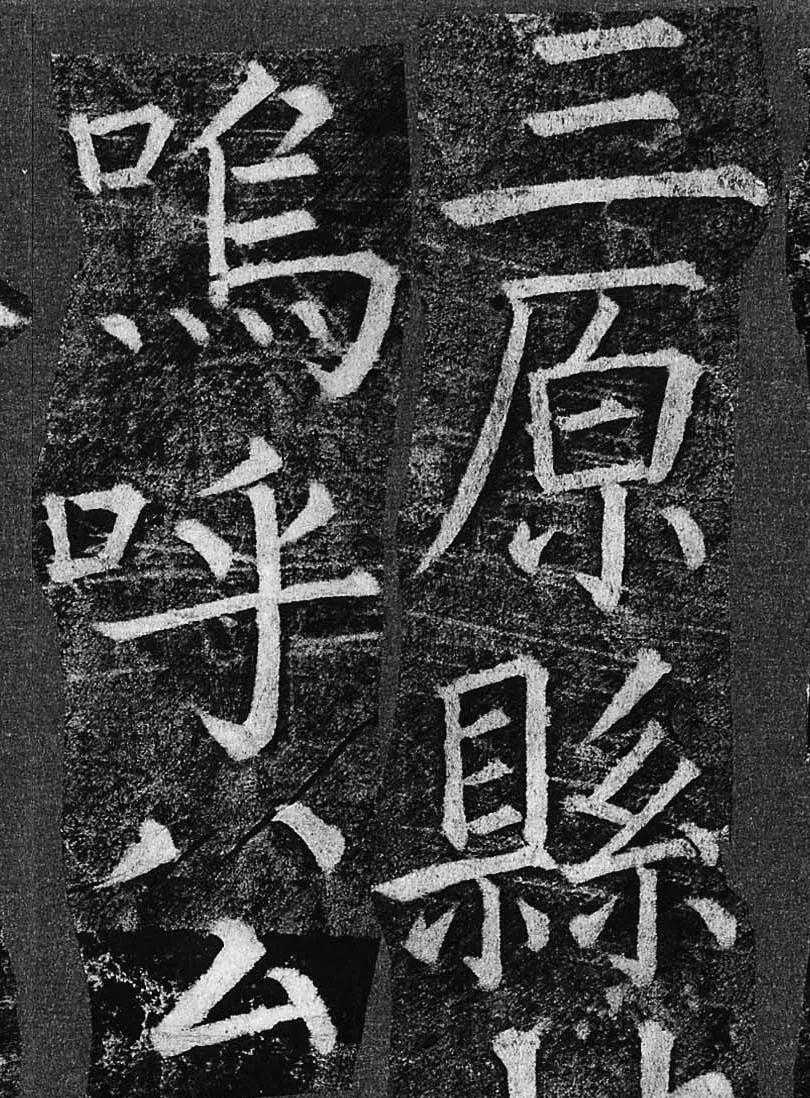 三原縣
嗚呼公